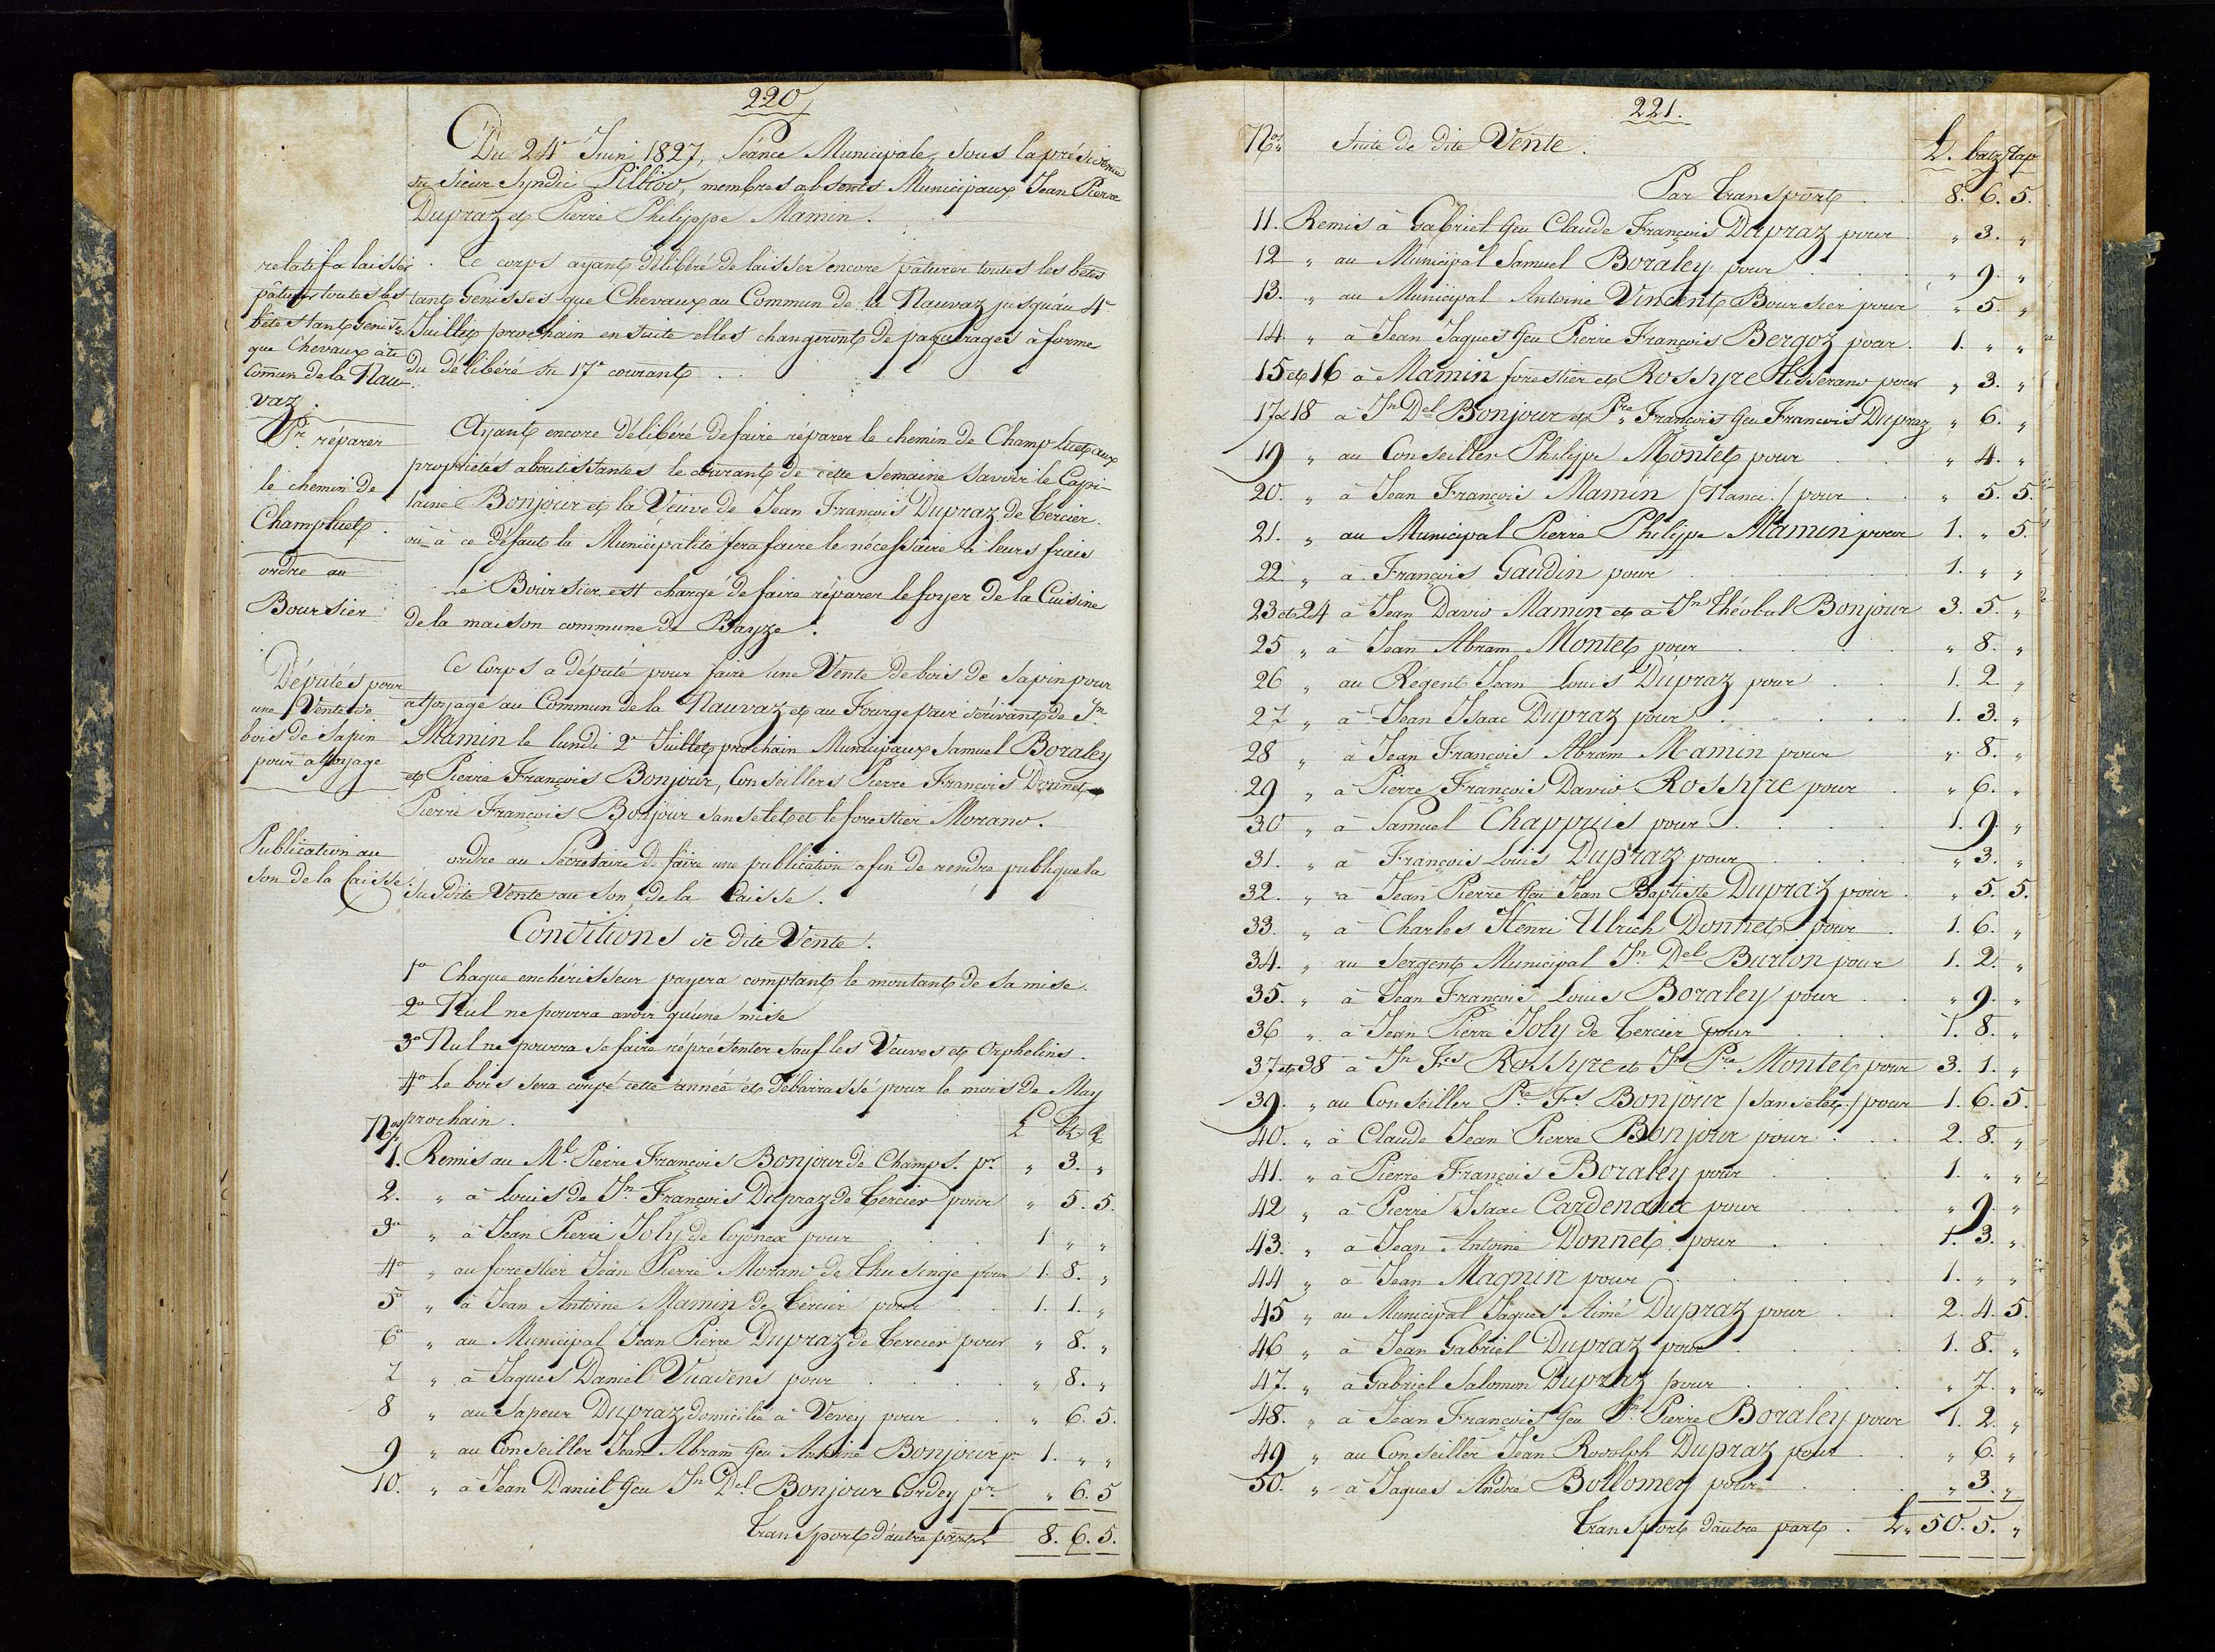 220
Du 24e Juin 1827, Séance Municipale, sous la présidence
du sieur Syndic Pilliod, membres absents Municipaux Jean Pierre
Dupraz et Pierre Philippe Mamin.
relatif a laisser
pâturer toutes les
bête stant Genisses
que Chevaux au
Commun de la Nau-
vaz.
Ce corps ayant délibéré de laisser encore pâturer toutes les bêtes
tant Genisses que Chevaux au Commun de la Nauvaz jusqu'au 4e
Juillet prochain ensuite elles changeront de paquerages à forme
du délibéré du 17e courant
Pr réparer
le chemin de
Champluet.
Ayant encore délibéré de faire réparer le chemin de Champ Luet aux
propriétés aboutissantes le courant de cette semaine savoir le Capi-
taine Bonjour et la Veuve de Jean François Dupraz de Cercier.
ou à ce défaut la Municipalité fera faire le nécessaire à leurs frais
ordre au
Boursier
Le Boursier est chargé de faire réparer le foyer de la Cuisine
de la maison commune de Bayze.
Députés pour
une Vente de
bois de sapin
pour affoyage
Ce Corps a député pour faire une Vente de bois de sapin pour
affoyage au Commun de la Nauvaz et au dérivant de Jn
Mamin le lundi 2e Juillet prochain Municipaux Samuel Boraley
et Pierre François Bonjour, Conseillers Pierre François Donnet
Pierre François Bonjour Sansetet et le forestier Morand.
Publication au
son de la Caisse
ordre au Secretaire de faire une publication afin de rendre publique la
su dite Vente au son de la Caisse.
Conditions de dite Vente.
1o Chaque enchérisseur payera comptant le montant de sa mise.
2o Nul ne pourra avoir qu'une mise
3o Nul ne pourra se faire réprésenter sauf les Veuves et Orphelins.
4o Le bois sera coupé cette année et débarrassé pour le mois de May
prochain.
Nos £ btz R
1. Remis au Ml Pierre François Bonjour de Champs. pr " 3. "
2. " à Louis de Jn François Dupraz de Cercier pour " 5. 5.
3o " à Jean Pierre Joly de Cojonex pour 1 " "
4o " au forestier Jean Pierre Morand de Thusinge pour 1. 8. "
5o " à Jean Antoine Mamin de Cercier pour 1. 1. "
6o " au Municipal Jean Pierre Dupraz de Cercier pour " 8. "
7 " à Jaques Daniel Vuadens pour " 8. "
8 " au Sapeur Dupraz domicilié à Vevey pour " 6. 5.
9 " au Conseiller Jean Abram feu Antoine Bonjour pr 1. " "
10. " à Jean Daniel feu Jn Del Bonjour Cordey pr " 6. 5
Transport d'autre part 8. 6. 5.
221.
Nos Suite de dite Vente. £. batz Rap
Par transport 8. 6. 5.
11. Remis à Gabriel feu Claude François Dupraz pour " 3. "
12 " au Municipal Samuel Boraley pour " 9. "
13. " au Municipal Antoine Vincent Boursier pour " 5. "
14. " à Jean Jaques feu Pierre François Bergoz pour. 1. " "
15 et 16 à Mamin forestier et Rossyre tisserand pour " 3. "
17 et 18 à Jn Del Bonjour et Pre François feu François Dupraz " 6. "
19 " au Conseiller Philippe Montet pour " 4. "
20. " à Jean François Mamin /Nanci./ pour " 5. 5.
21. " au Municipal Pierre Philippe Mamin pour 1. " 5.
22 " à François Gaudin pour 1. " "
23 et 24 à Jean David Mamin et à Jn Théobal Bonjour 3. 5. "
25 " à Jean Abram Montet pour " 8. "
26 " au Régent Jean Louis Dupraz pour 1. 2 "
27 " à Jean Isaac Dupraz pour 1. 3. "
28 " à Jean François Abram Mamin pour " 8. "
29 " à Pierre François David Rossyre pour " 6. "
30 " à Samuel Chappuis pour 1. 9. "
31. " à François Louis Dupraz pour " 3. "
32. " à Jean Pierre feu Jean Baptiste Dupraz pour. " 5. 5.
33. " à Charles Henri Ulrich Donnet pour 1. 6. "
34. " au Sergent Municipal Jn Del Burion pour 1. 2. "
35. " à Jean François Louis Boraley pour " 9. "
36 " à Jean Pierre Joly de Cercier pour 1. 8. "
37 et 38 à Jn Fs Rossyre et Jn Pre Montet pour 3. 1. "
39. " au Conseiller Pre Fs Bonjour /Sansetet/ pour 1. 6. 5.
40. " à Claude Jean Pierre Bonjour pour 2. 8. "
41. " à Pierre François Boraley pour 1. " "
42 " à Pierre Isaac Cardenaux pour " 9. "
43. " à Jean Antoine Donnet pour 1. 3. "
44 " à Jean Magnin pour 1. " "
45 " au Municipal Jaques Aimé Dupraz pour 2. 4. 5.
46 " à Jean Gabriel Dupraz pour 1. 8. "
47. " à Gabriel Salomon Dupraz pour " 7. "
48. " à Jean François feu Jn Pierre Boraley pour 1. 2. "
49 " au Conseiller Jean Rodolph Dupraz pour " 6. "
50. " à Jaques André Bollomey pour " 3. "
Transport d'autre part. £. 50. 5. "